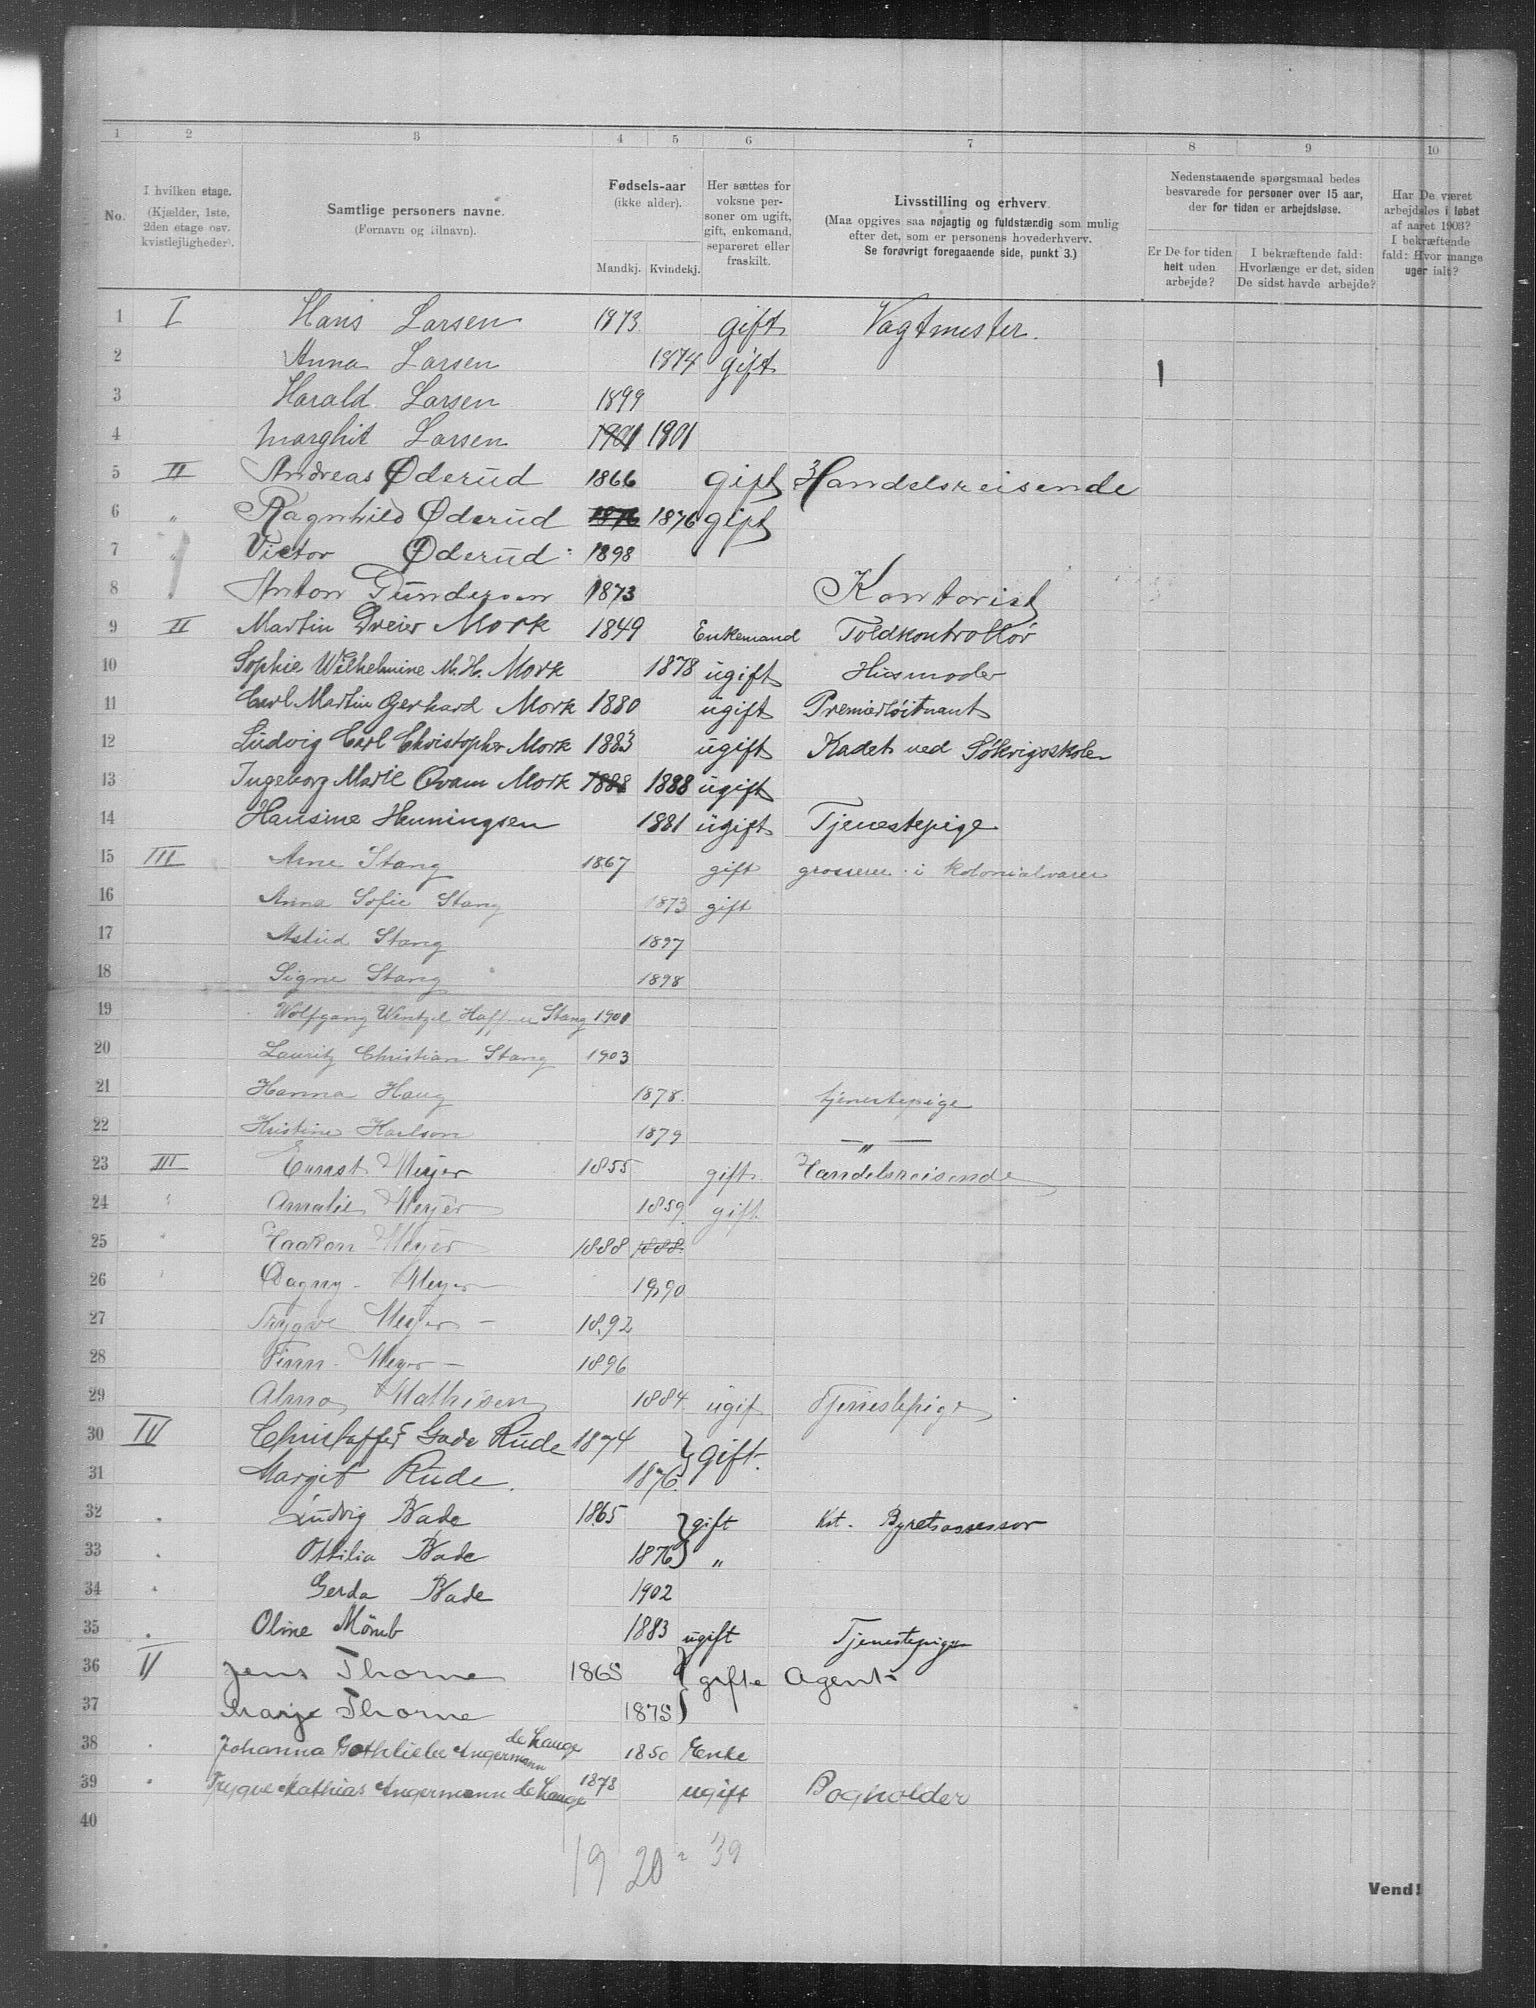 1 2 3 4 5 6 7 8 9 10
No.
I hvilken etage.
(Kjælder, 1ste,
2den etage osv.
kvistlejligheder).
Samtlige personers navne.
(Fornavn og tilnavn).
Fødsels-aar
(ikke alder).
Mandkj. Kvindekj.
Her sættes for
voksne per-
soner om ugift,
gift, enkemand,
separeret eller
fraskilt.
Livsstilling og erhverv.
(Maa opgives saa nøjagtig og fuldstændig som mulig
efter det, som er personens hovederhverv.
Se forøvrigt foregaaende side, punkt 3.)
Nedenstaaende spørgsmaal bedes
besvarede for personer over 15 aar,
der for tiden er arbejdsløse.
Er De for tiden
helt uden
arbejde?
I bekræftende fald:
Hvorlænge er det, siden
De sidst havde arbejde?
Har De været
arbejdsløs i løbet
af aaret 1903?
I bekræftende
fald: Hvor mange
uger ialt?
1 I Hans Larsen 1873 gift Vagtmester.
2 Anna Larsen 1874 gift
3 Harald Larsen 1899
4 Marghit Larsen 1901 1901
5 II Andreas Øderud 1866 gift Handelsreisende
6 " Ragnhild Øderud 1876 1876 gift
7 " Victor Øderud 1898
8 Anton Gundersen 1873 Kontorist
9 II Martin Dreier Mork 1849 Enkemand Toldkontrollør
10 Sophie Wilhelmine M. H. Mork 1878 ugift Husmoder
11 Carl Martin Gerhard Mork 1880 ugift Premierløitnant
12 Ludvig Carl Christopher Mork 1883 ugift Kadet ved Søkrigsskolen
13 Ingeborg Marie Qvam Mork 1888 1888 ugift
14 Hansine Henningsen 1881 ugift Tjenestepige
15 III Arne Stang 1867 gift grosserer i kolonialvarer
16 Anna Sofie Stang 1873 gift
17 Astrid Stang 1897
18 Signe Stang 1898
19 Wolfgang Wentzel Haffner Stang 1901
20 Lauritz Christian Stang 1903
21 Hanna Haug 1878. tjenestepige
22 Kristine Karlson 1879 — " —
23 III Ernst Meyer 1855 gift. Handelsreisende
24 " Amalie Meyer 1859 gift.
25 " Haakon Meyer 1888 1888
26 " Dagny Meyer 1890
27 Trygve Meyer 1892
28 Finn Meyer 1896
29 Alma Mathisen 1884 ugif Tjenestepige
30 IV Christoffer Gade Rude 1874 } gift.
31 Margit Rude. 1876
32 " Ludvig Bade 1865 } gift Kst. Byretsassessor
33 " Ottilia Bade 1876 } "
34 " Gerda Bade 1902
35 " Oline Mömb 1883 ugift Tjenestepige
36 V Jens Thorne 1865 } gifte Agent
37 Marie Thorne 1875 }
38 " Johanna Gothliebe Angermann de Lange 1850 Enke
39 " Trygve Mathias Angermann de Lange 1878 ugift Bogholder
40
19 20 = 39
Vend!